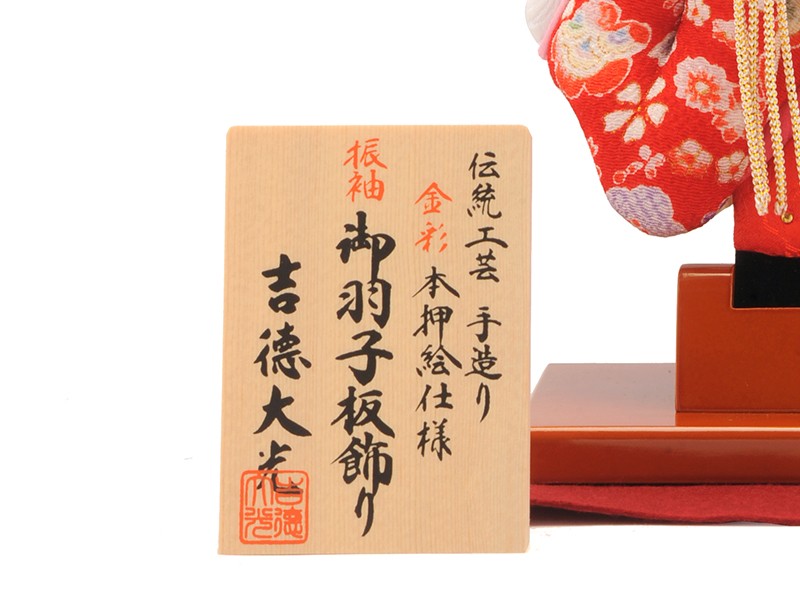 伝統工芸 手造り
金彩 本押絵仕様
振袖 御羽子板飾り
吉徳大光
吉徳大光